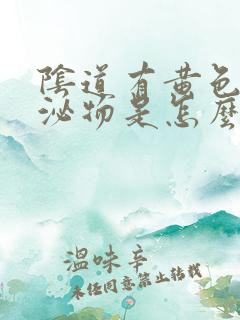 陰道有黃色
泌物是怎麼
溫味辛
未任同意禁止转载